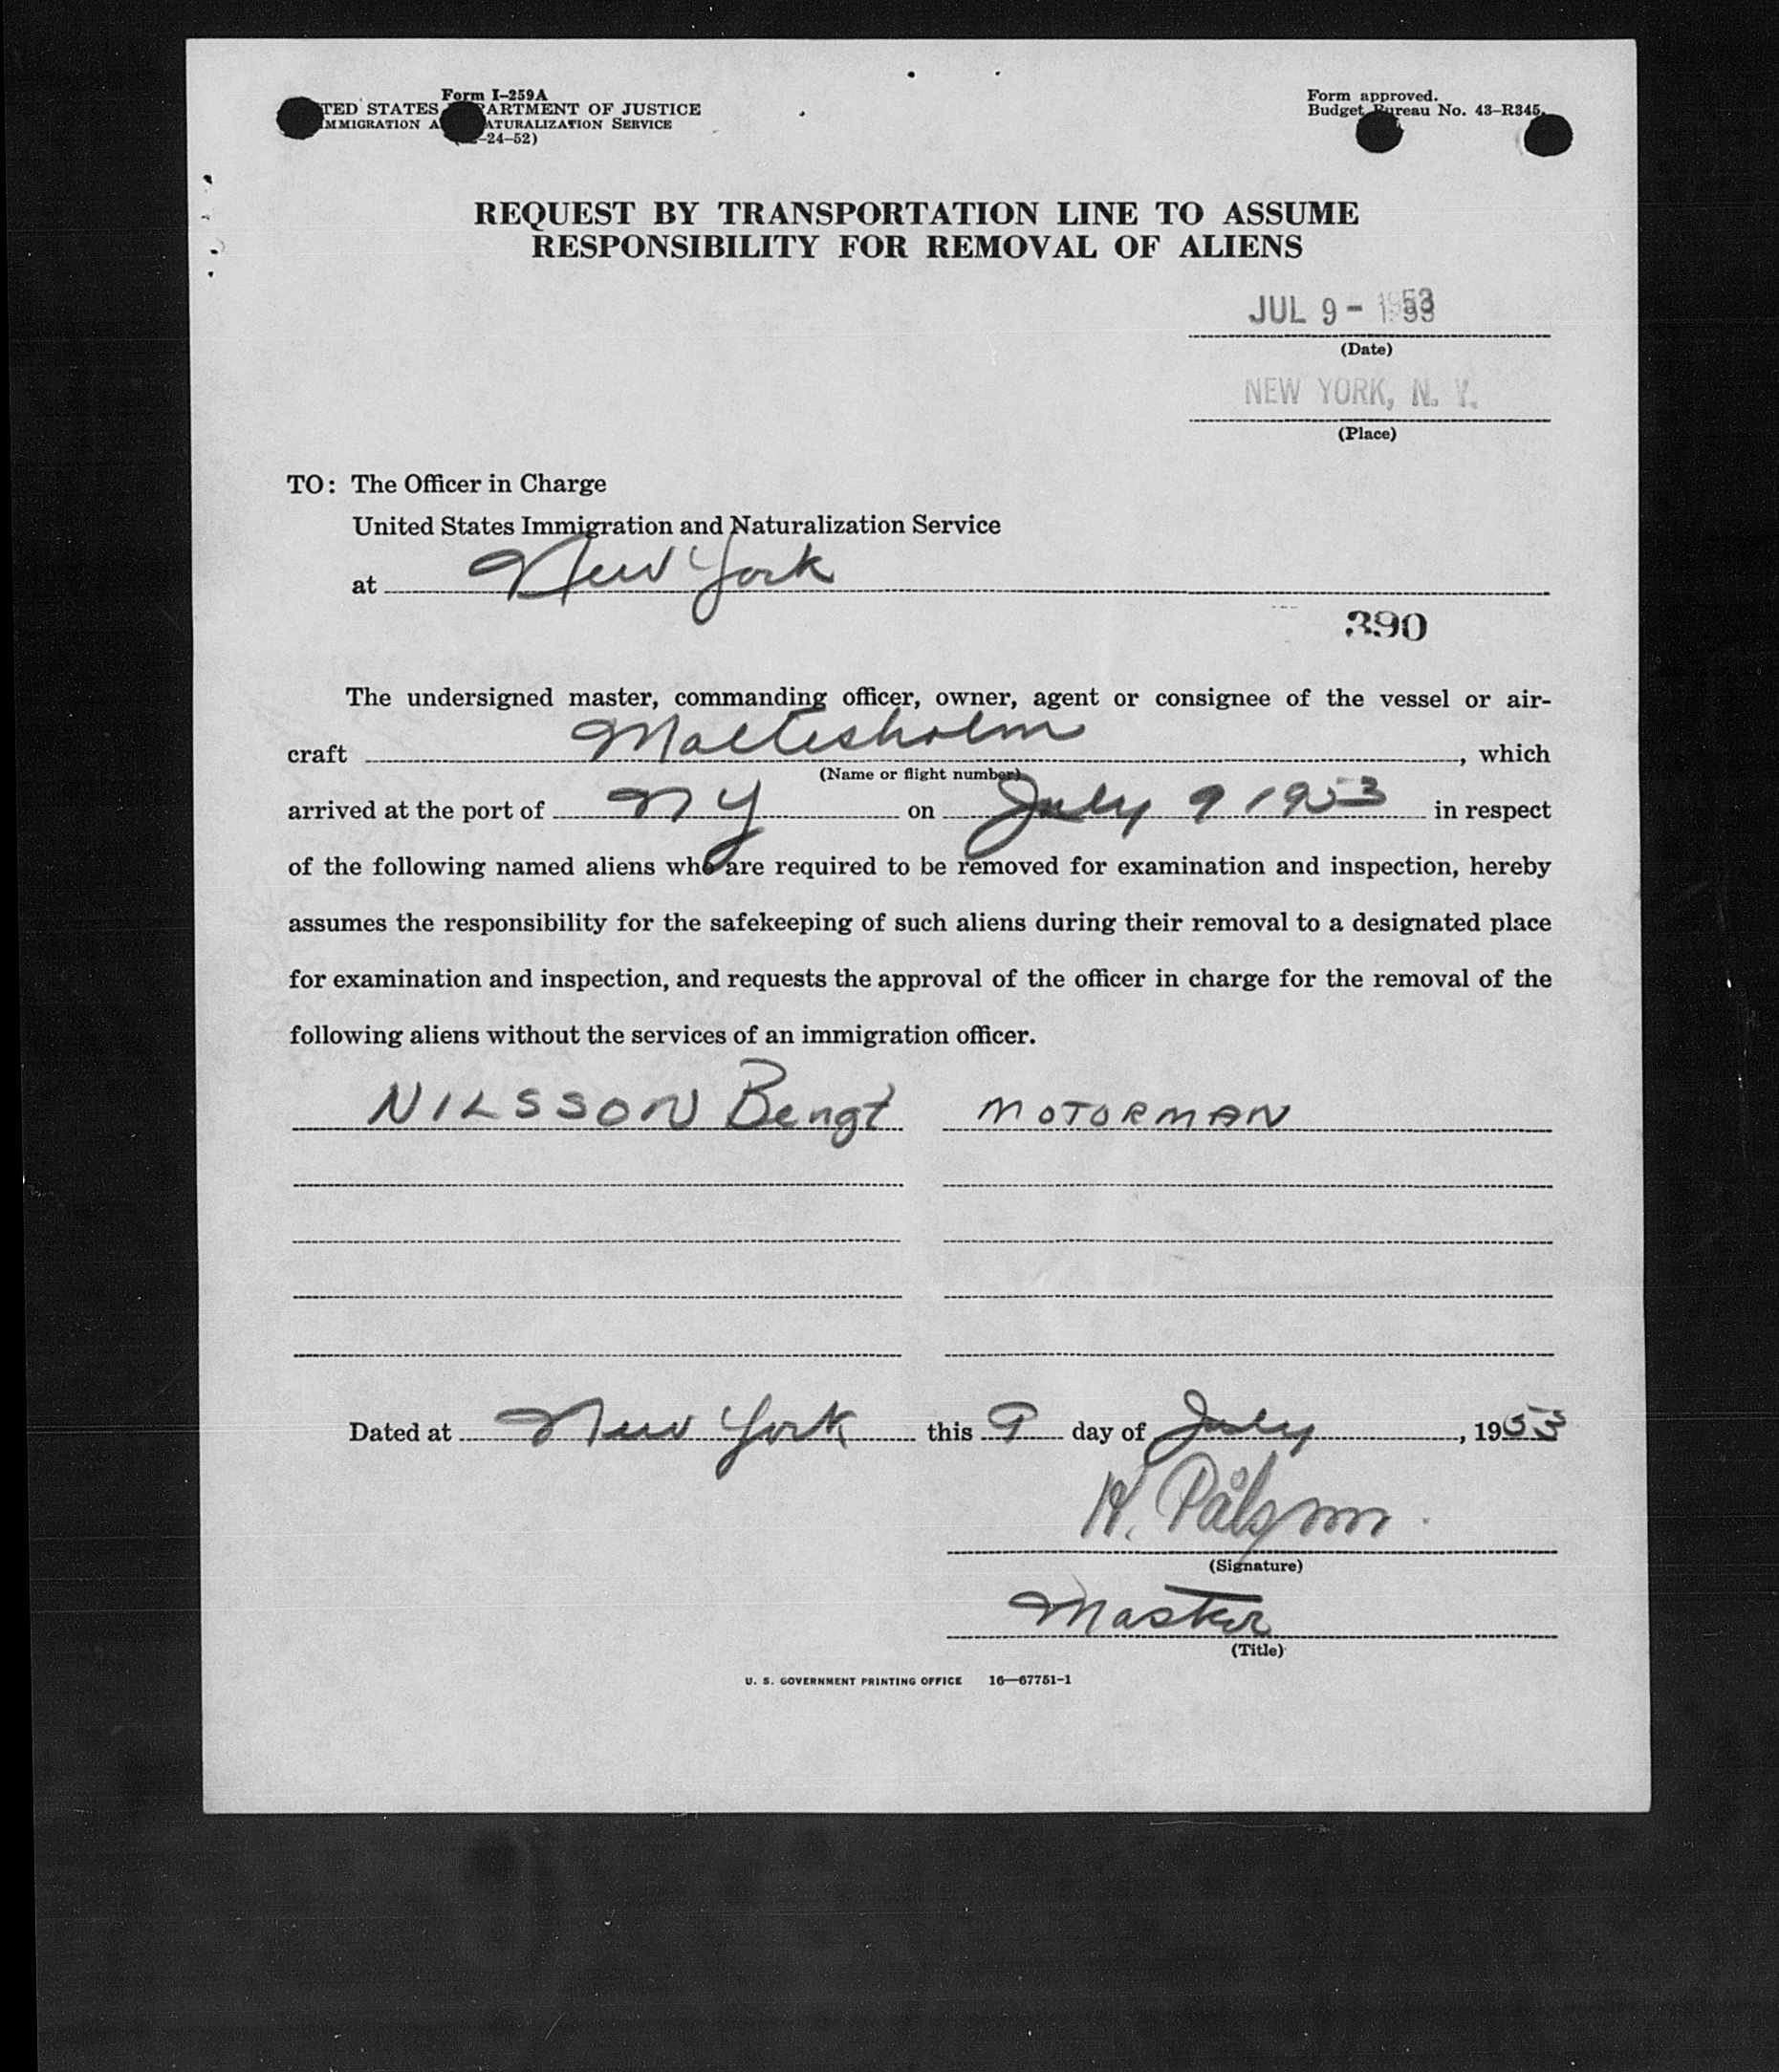 Form I-259A
TED STATES PARTMENT OF JUSTICE
MMIGRATION A ATURALIZATION SERVICE
-24-52)
Form approved.
Budget Bureau No. 43-R345.
REQUEST BY TRANSPORTATION LINE TO ASSUME
RESPONSIBILITY FOR REMOVAL OF ALIENS
JUL 9 - 1953
(Date)
NEW YORK, N. Y.
(Place)
TO: The Officer in Charge
United States Immigration and Naturalization Service
at New York
390
The undersigned master, commanding officer, owner, agent or consignee of the vessel or air-
craft Maltesholm, which
(Name or flight number)
arrived at the port of N Y on July 9 1953 in respect
of the following named aliens who are required to be removed for examination and inspection, hereby
assumes the responsibility for the safekeeping of such aliens during their removal to a designated place
for examination and inspection, and requests the approval of the officer in charge for the removal of the
following aliens without the services of an immigration officer.
NILSSON Bengt MOTORMAN
Dated at New York this 9 day of July, 1953
H. Pålsson
(Signature)
Master
(Title)
U. S. GOVERNMENT PRINTING OFFICE 16—67751-1